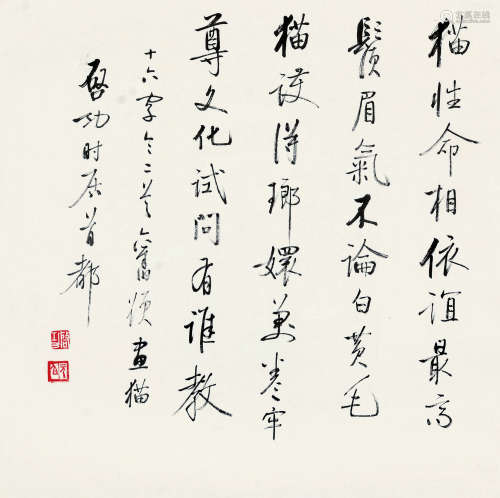 猫性命相依谊最高
鬚眉氣不論白黄毛
猫護得瑯嬛萬卷牢
尊文化试問有谁教
十六字令二首舊题画猫
启功时居首都